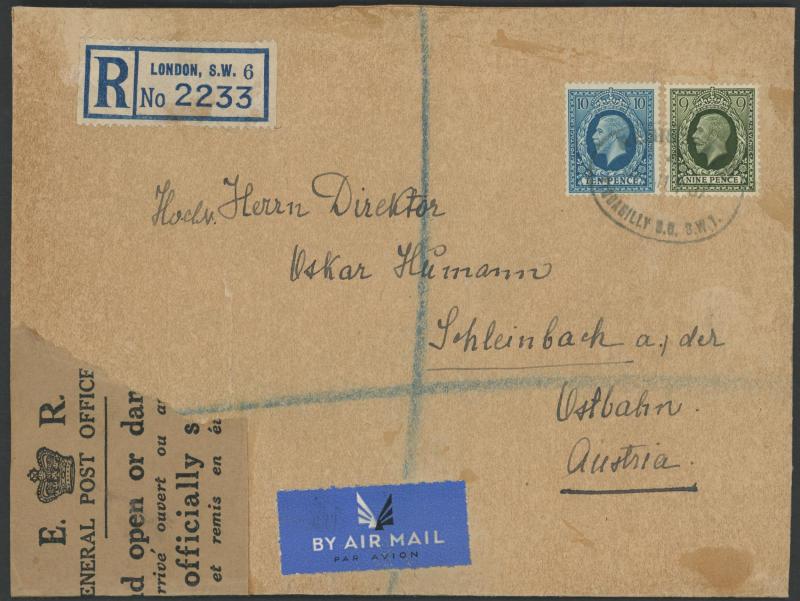 R LONDON, S.W. 6
No 2233
10 10
POSTAGE
TEN PENCE
9 9
POSTAGE
NINE PENCE
B.O. S.W.1.
Hochv. Herrn Direktor
Oskar Humann
Schleinbach a., der
Ostbahn.
Austria.
E. R.
ENERAL POST OFFICE
d open or dar
rrivé ouvert ou a
officially s
et remis en é
BY AIR MAIL
PAR AVION